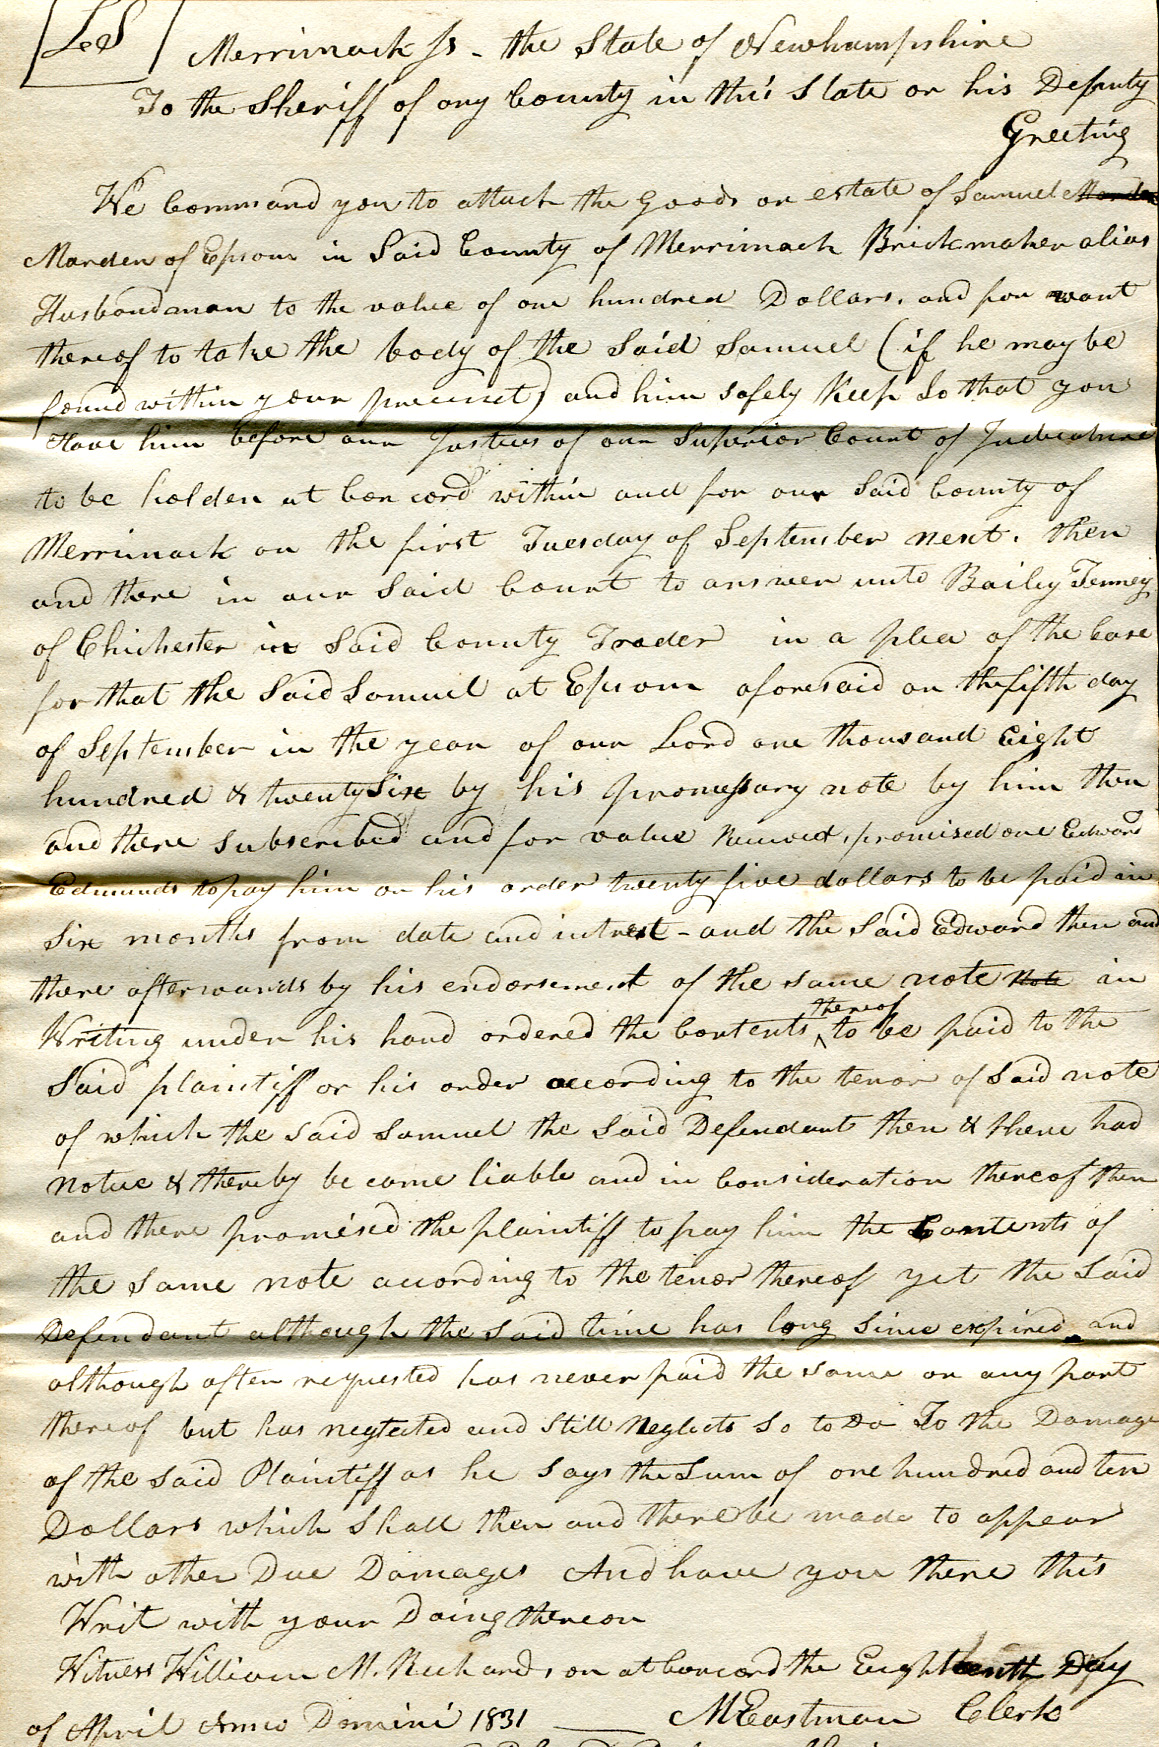 L.S
Merrimack ss - the State of Newhampshire
To the Sheriff of any County in this State or his Deputy
Greeting
We Command you to attach the Goods or estate of Samuel
Marden of Epsom in Said County of Merrimack Brickmaker alias
Husbandman to the value of one hundred Dollars, and for want
thereof to take the body of the Said Samuel (if he may be
found within your precinct) and him safely Keep So that you
Have him before our Justices of our Superior Court of Judicature
to be holden at Concord within and for our Said County of
Merrimack on the first Tuesday of September next. then
and there in our Said Court to answer unto Bailey Tenney
of Chichester in Said County Trader in a plea of the Case
for that the Said Samuel at Epsom aforesaid on the fifth day
of September in the year of our Lord one thousand Eight
hundred & twenty Six by his promissary note by him then
and there subscribed and for value Received, promised one Edward
Edmunds to pay him or his order twenty five dollars to be paid in
Six months from date and intrest - and the Said Edward then and
there afterwards by his endorsement of the same note Note in
Writing under his hand ordered the Contents thereof to be paid to the
Said plaintiff or his order according to the tenor of Said note
of which the said Samuel the Said Defendant then & there had
notice & thereby became liable and in Consideration thereof then
and there promised the plaintiff to pay him the Contents of
the Same note according to the tenor thereof yet the Said
Defendant although the said time has long Since expired and
although often requested has never paid the same or any part
thereof but has neglected and Still Neglects So to Do To the Damage
of the Said Plaintiff as he Says the Sum of one hundred and ten
Dollars which Shall then and there be made to appear
with other Due Damages And have you there this
Writ with your Doing thereon
Witness William M. Richardson at Concord the Eighteenth Day
of April Anno Domini 1831 M Eastman Clerk